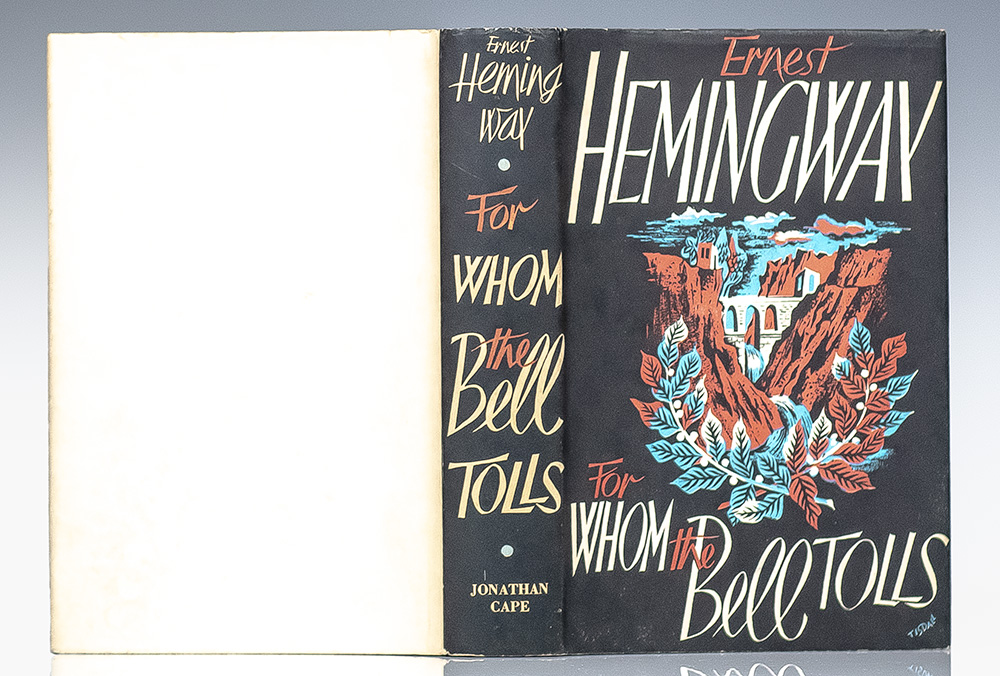 Ernest
Heming
way
For
WHOM
the
Bell
TOLLS
JONATHAN
CAPE
Ernest
HEMINGWAY
For
WHOM the Bell TOLLS
TISDALL